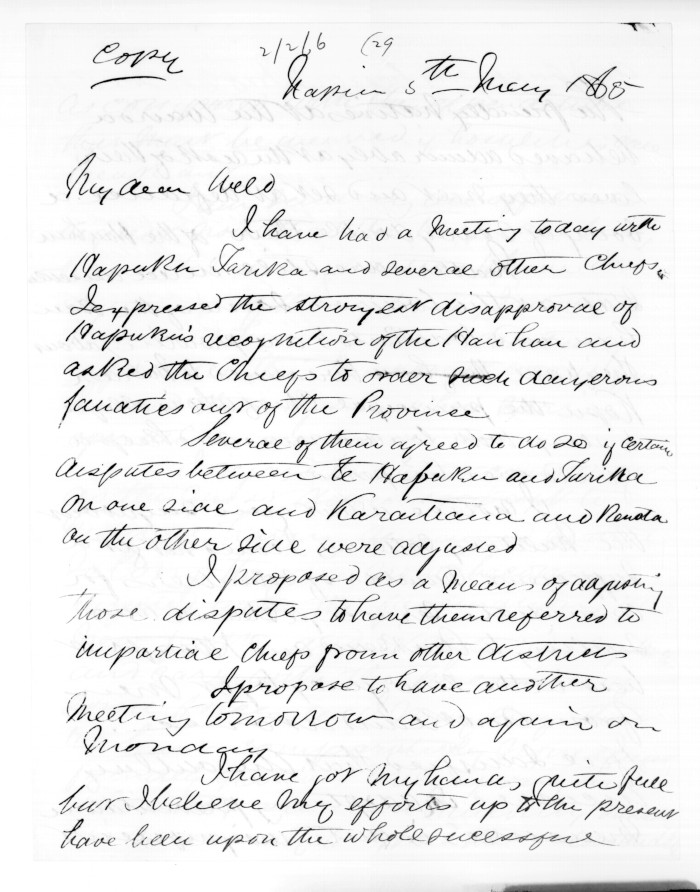 Copy
2/2/6 (29
Napier 5th May 1865
My dear Weld
I have had a Meeting today with
Hapuku Tarika and several other Chiefs.
I expressed the strongest disapproval of
Hapuku's recognition of the Hau hau and
asked the Chiefs to order such dangerous
fanatics out of the Province
Several of them agreed to do so if certain
disputes between Te Hapuku and Tarika
on one side and Karaitiana and Renata
on the other side were adjusted
I proposed as a means of adjusting
those disputes to have them referred to
impartial chiefs from other districts
I propose to have another
Meeting tomorrow and again on
Monday
I have got my hands quite full
but I believe my efforts up to the present
have been upon the whole sucessful